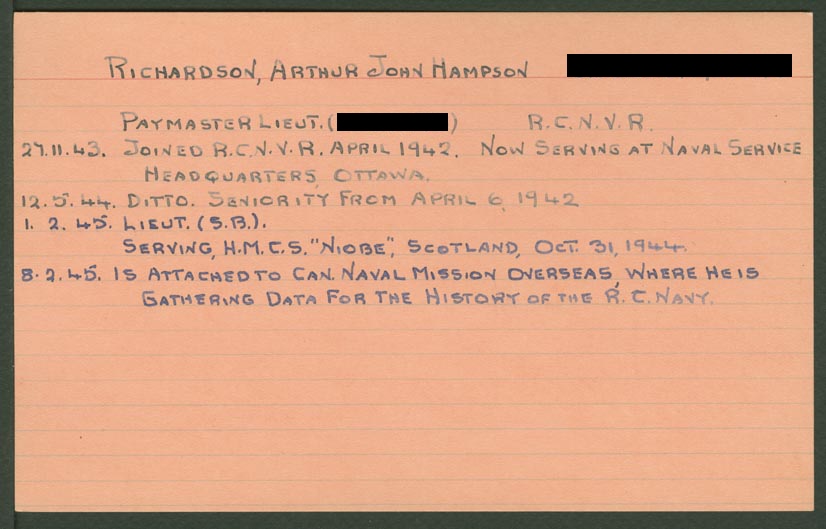 RICHARDSON, ARTHUR JOHN HAMPSON
PAYMASTER LIEUT. ( ) R.C.N.V.R.
27.11.43. JOINED R.C.N.V.R. APRIL 1942. NOW SERVING AT NAVAL SERVICE
HEADQUARTERS, OTTAWA.
12.5.44. DITTO. SENIORITY FROM APRIL 6, 1942
1. 2. 45. LIEUT. (S.B.).
SERVING, H.M.C.S. "NIOBE", SCOTLAND, OCT. 31, 1944.
8.2.45. IS ATTACHED TO CAN. NAVAL MISSION OVERSEAS, WHERE HE IS
GATHERING DATA FOR THE HISTORY OF THE R.C.NAVY.